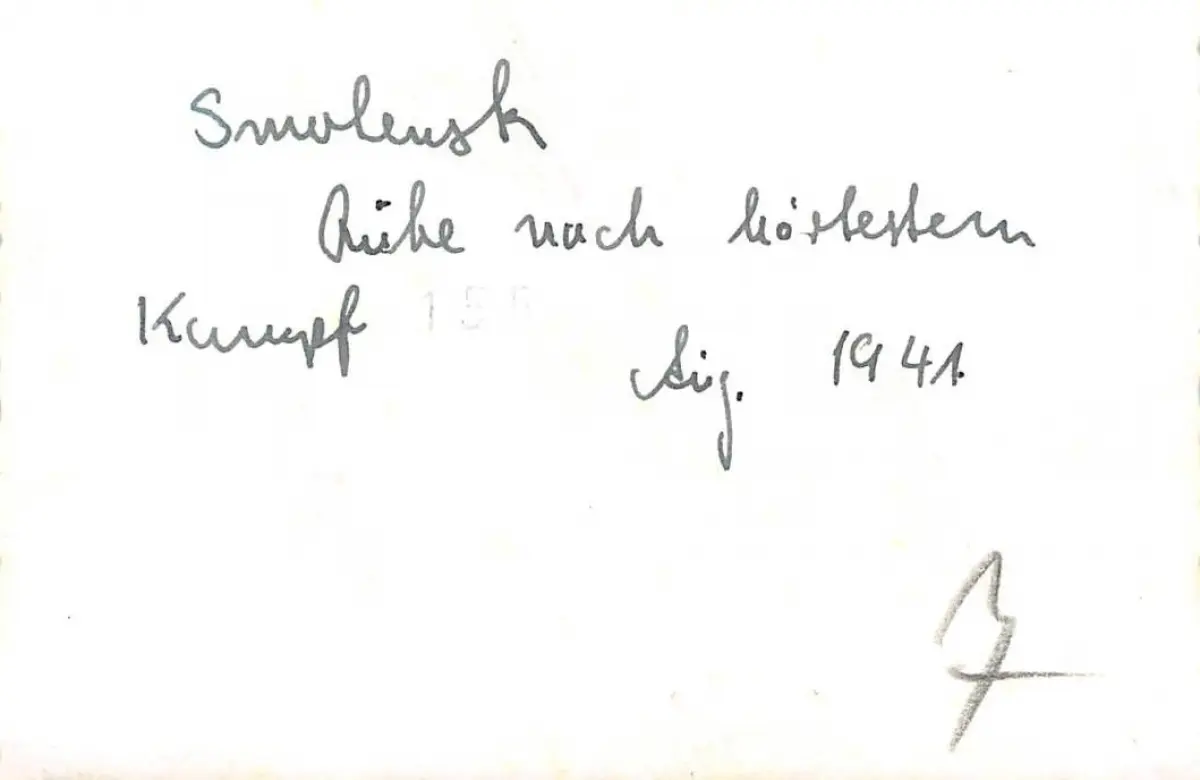 Smolensk
Ruhe nach härtestem
Kampf
Aug. 1941.